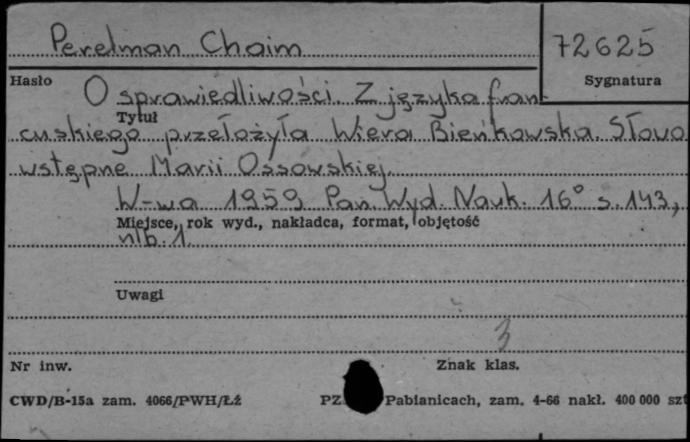 Perelman Chaim
72625
Hasło
Sygnatura
O sprawiedliwości. Z języka fran-
Tytuł
cuskiego przełożyła Wiera Bieńkowska. Słowo
wstępne Marii Ossowskiej.
W-wa 1959 Pań. Wyd. Nauk. 16° s. 143,
Miejsce, rok wyd., nakładca, format, objętość
nlb. 1.
Uwagi
3
Nr inw.
Znak klas.
CWD/B-15a zam. 4066/PWH/Łź
PZ Pabianicach, zam. 4-66 nakł. 400 000 szt